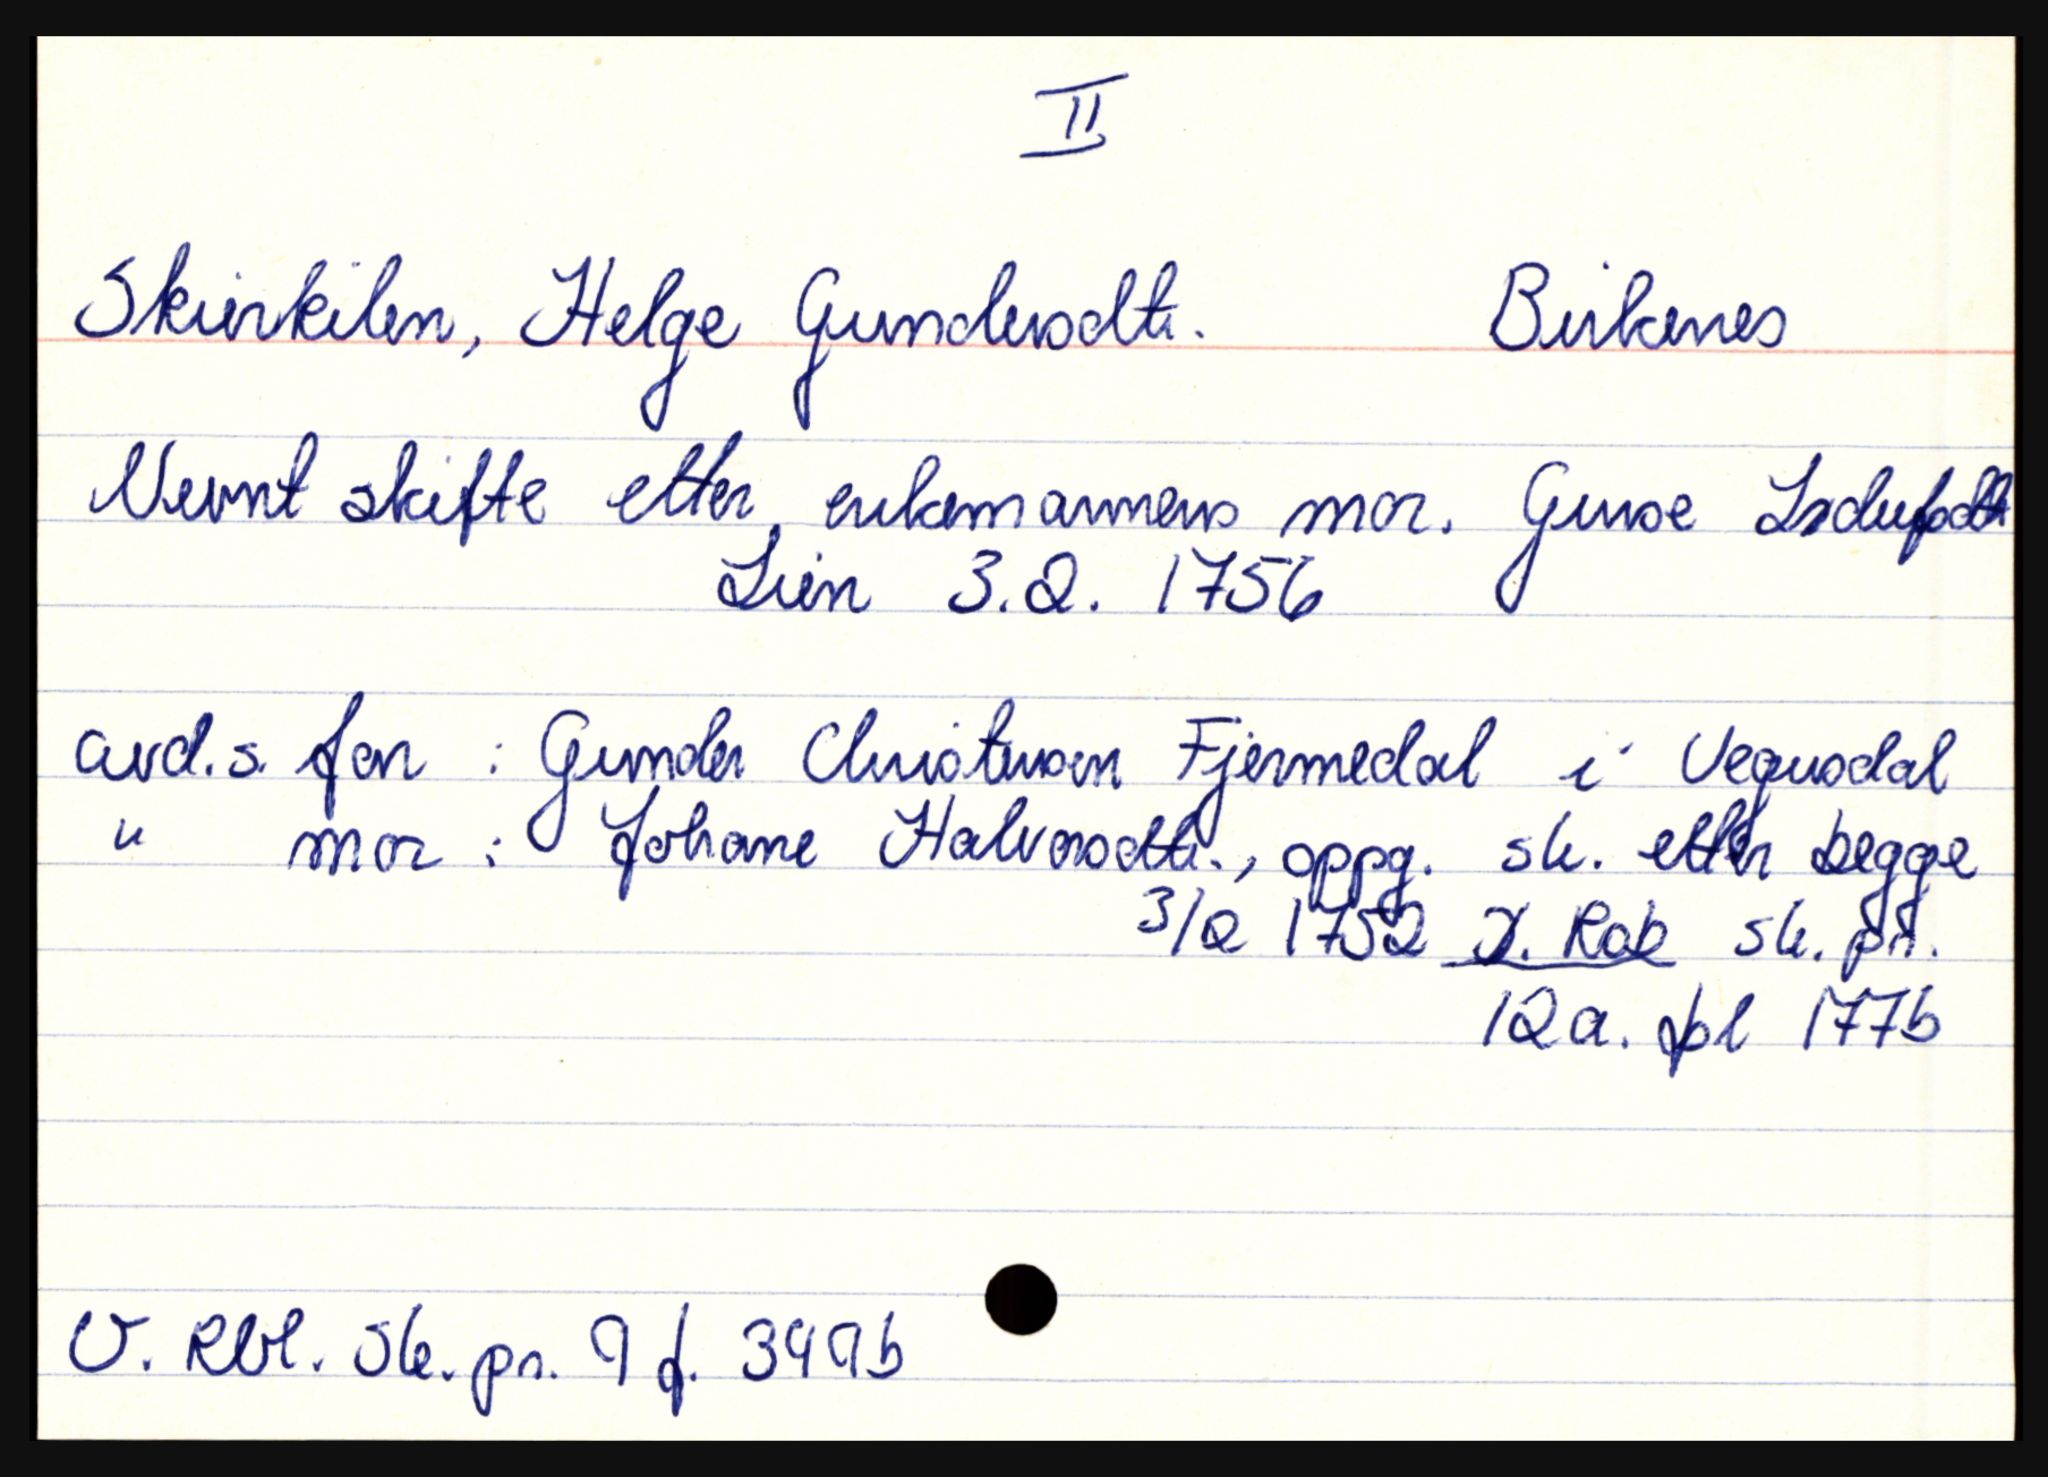 II
Skierkilen, Helge Gundersdtr. Birkenes
Nevnt skifte etter enkemannens mor. Guroe
Lien 3.2. 1756
avd.s. far : Gunder Christensen Fjermedal i Vegusdal
" mor : Johane Halvorsdtr., oppg. sk. etter begge
3/2 1752 Rab sk. pr.
12a. fol 177b
V. Rbl. Sk. pr. 9 f. 399b